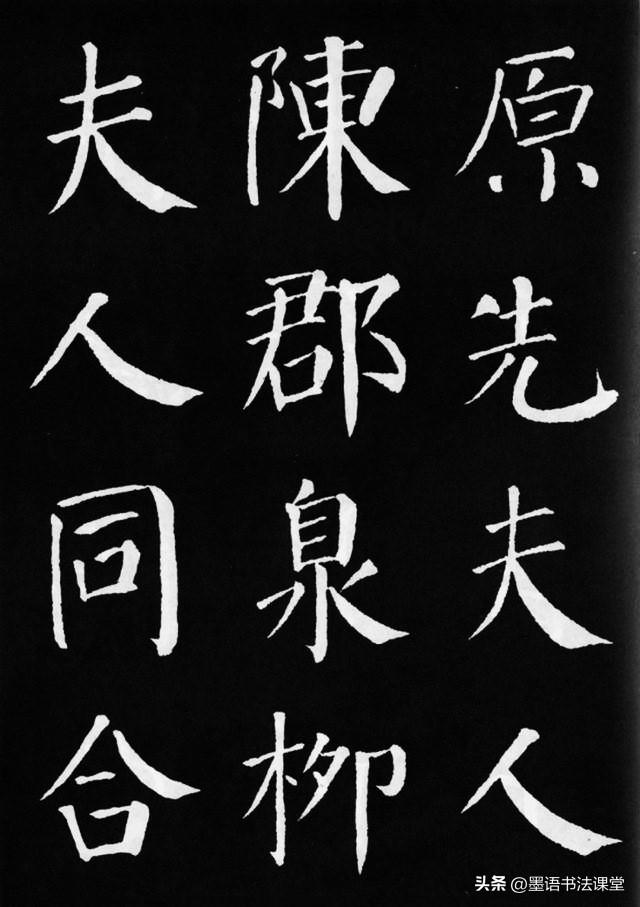 原先夫人
陳郡泉柳
夫人同合
头条 @墨语书法课堂